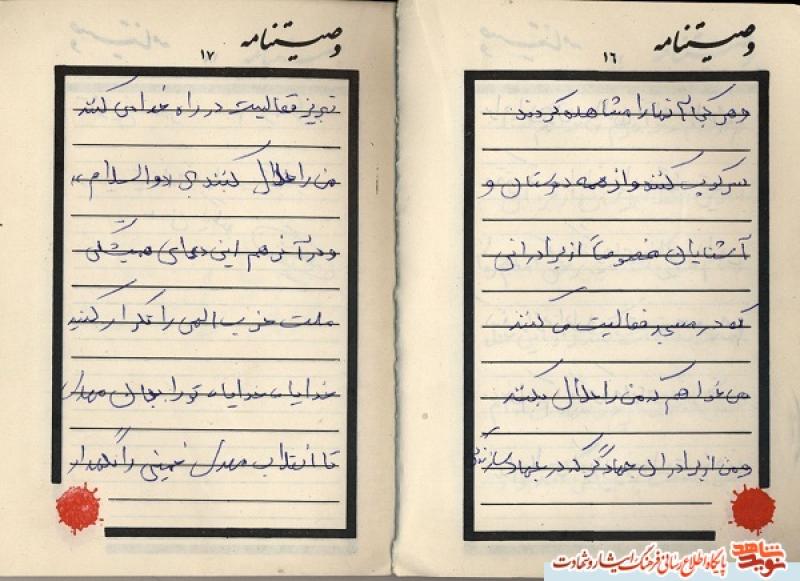 وصیتنامه
۱۶
و هر کجا آنها را مشاهده کردند
سرکوب کنند و از همه دوستان و
آشنایان مخصوصاً از برادرانی
که در مسجد فعالیت می کنند
می خواهم که من را حلال بکنند
و من از برادران جهادگر که در جهاد سازندگی
وصیتنامه
۱۷
تبریز فعالیت در راه خدا می کنند
من را حلال کنند والسلام
و در آخر هم این دعای همیشگی
ملت حزب الهی را تکرار کنید
خدایا، خدایا، تو را بجان مهدی
تا انقلاب مهدی خمینی را نگهدار
نوید شاهد
پایگاه اطلاع رسانی فرهنگ ایثار و شهادت